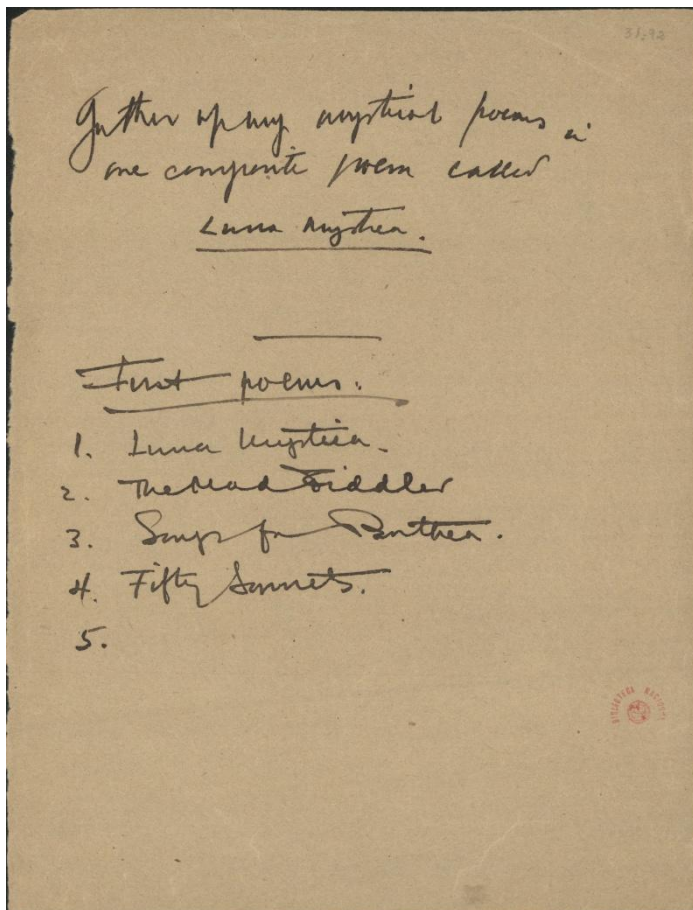 Gather up my mystical poems in
one composite poem called
Luna Mystica.
First poems:
1. Luna Mystica.
2. The Mad Fiddler
3. Songs for Panthea.
4. Fifty Sonnets.
5.
BIBLIOTECA NACIONAL